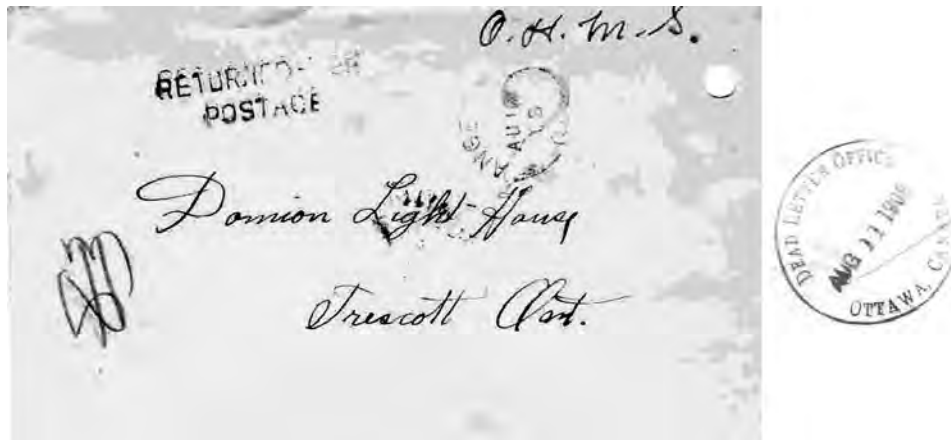 O. H. M. S.
RETURNED FOR
POSTAGE
AU 1
Domion Light House
Prescott Ont.
DEAD LETTER OFFICE
AUG 11 1908
OTTAWA, CANADA